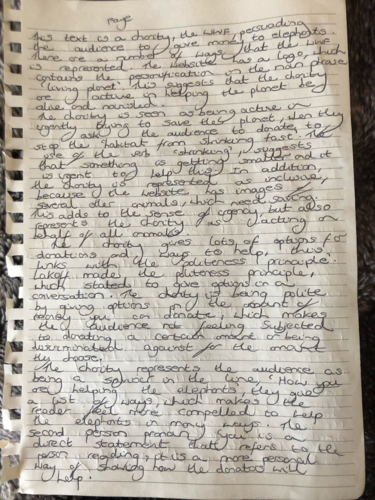 page
This text is a charity, the WWF, persuading
the audience to give money to elephants.
There are a number of ways that the WWF
is represented. The website has a logo, which
contains the personification in the main phrase
"living planet". This suggests that the charity
are active in helping the planet being
alive and nourished.
The charity is seen as being active in
urgently trying to save the planet, when they
ask the audience to donate, to
stop the "habitat from shrinking fast". The
use of the verb "shrinking", suggests
that something is getting smaller and it
is urgent to help this. In addition,
the charity is represented as inclusive,
because the website has images of
several other animals, which need saving.
This adds to the sense of urgency, but also
represents the charity as acting on
behalf of all animals.
The charity gives lots of options for
donations and ways to help, thus
links with the politeness principle.
Lakoff made the politeness principle,
which stated to give options in a
conversation. The charity is being polite
by giving options for the amount of
money you can donate, which makes
the audience not feeling subjected
to donating a certain amount or being
discriminated against for the amount
they choose.
The charity represents the audience as
being a saviour in the line, "How you
are helping the elephants, they give
a list of ways, which makes the
reader feel more compelled to help
the elephants in many ways. The
second person pronoun 'you' is a
direct statement that refers to the
person reading; it is a more personal
way of showing how the donators will
help.